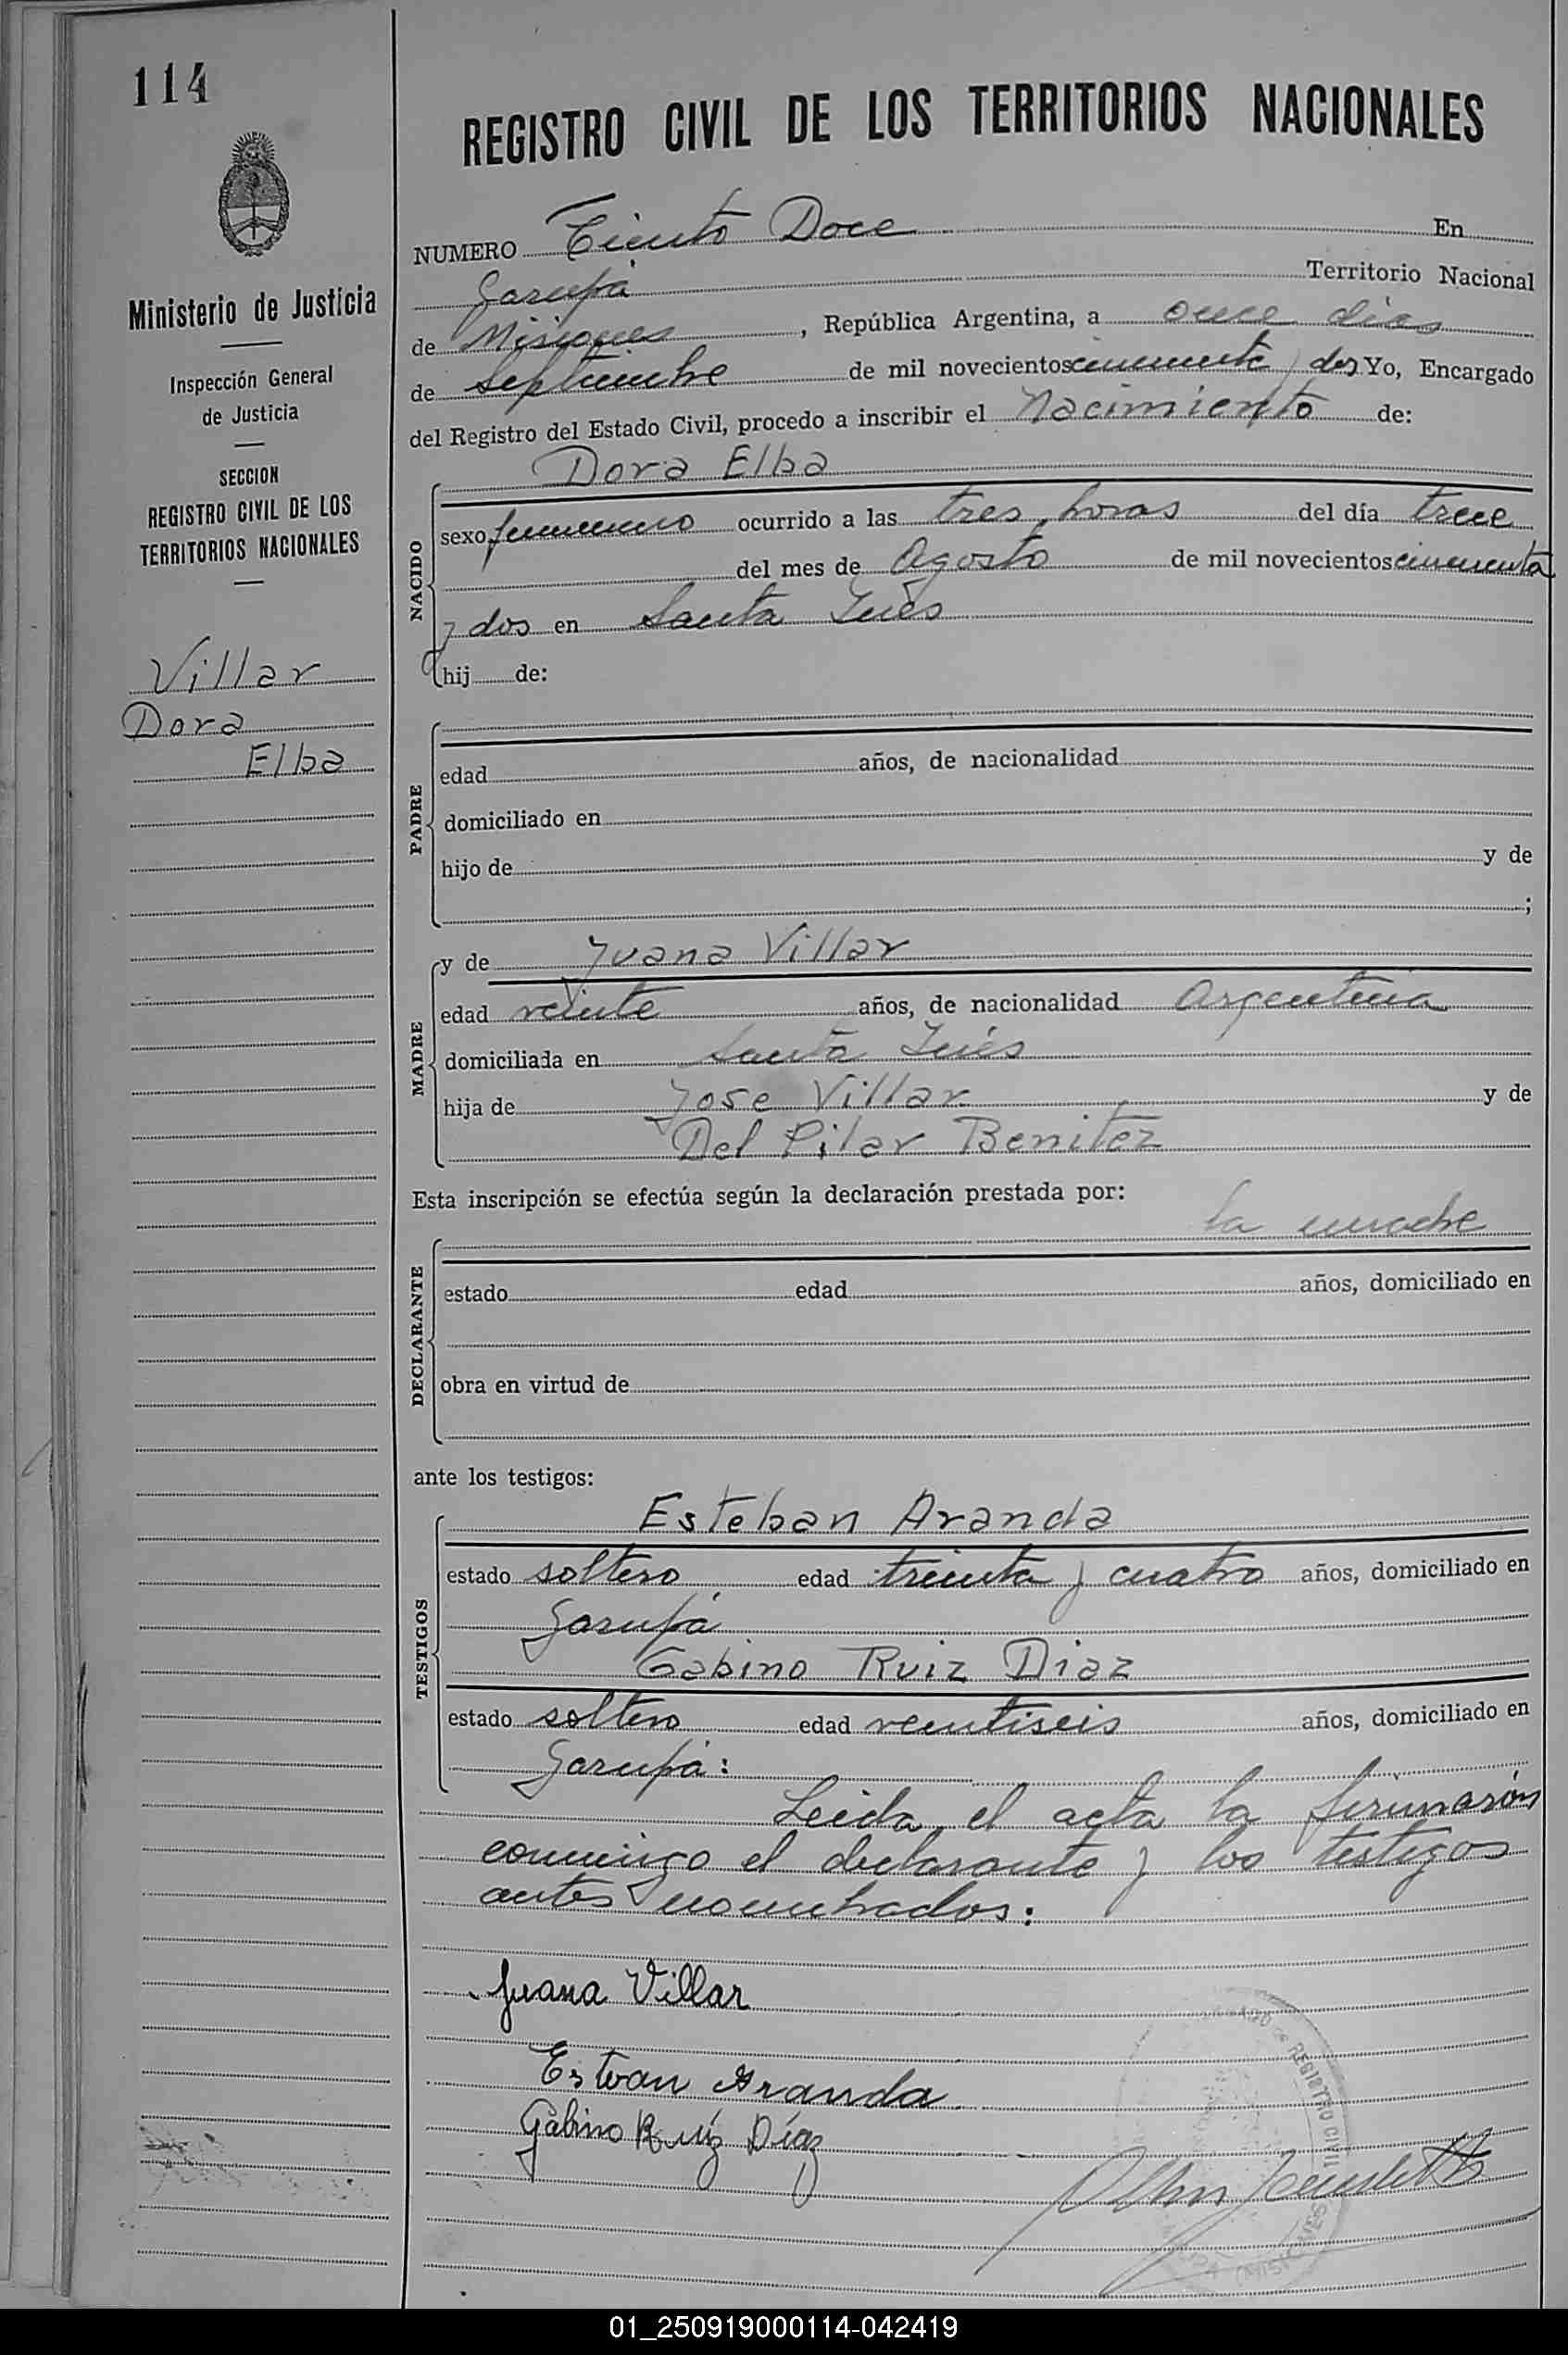 114
REGISTRO CIVIL DE LOS TERRITORIOS NACIONALES
Ministerio de Justicia
Inspección General
de Justicia
SECCION
REGISTRO CIVIL DE LOS
TERRITORIOS NACIONALES
Villar
Dora
Elba
NUMERO Ciento Doce En
Garupá Territorio Nacional
de Misiones, República Argentina, a once dias
de Septiembre de mil novecientos cincuenta y dos Yo, Encargado
del Registro del Estado Civil, procedo a inscribir el Nacimiento de:
Dora Elba
NACIDO
sexo femenino ocurrido a las tres horas del día trece
del mes de Agosto de mil novecientos cincuenta
y dos en Santa Inés
hij de:
PADRE
edad años, de nacionalidad
domiciliado en
hijo de y de
;
MADRE
y de Juana Villar
edad veinte años, de nacionalidad Argentina
domiciliada en Santa Inés
hija de Jose Villar y de
Del Pilar Benitez
Esta inscripción se efectúa según la declaración prestada por:
la madre
DECLARANTE
estado edad años, domiciliado en
obra en virtud de
ante los testigos:
TESTIGOS
Esteban Aranda
estado soltero edad treinta y cuatro años, domiciliado en
Garupá
Gabino Ruiz Diaz
estado soltero edad veintiseis años, domiciliado en
Garupá:
Leida el acta la firmarón
conmigo el declarante y los testigos
antes nombrados:
Juana Villar
Estvan Aranda
Gabino Ruíz Díaz
REGISTRO CIVIL
01_250919000114-042419